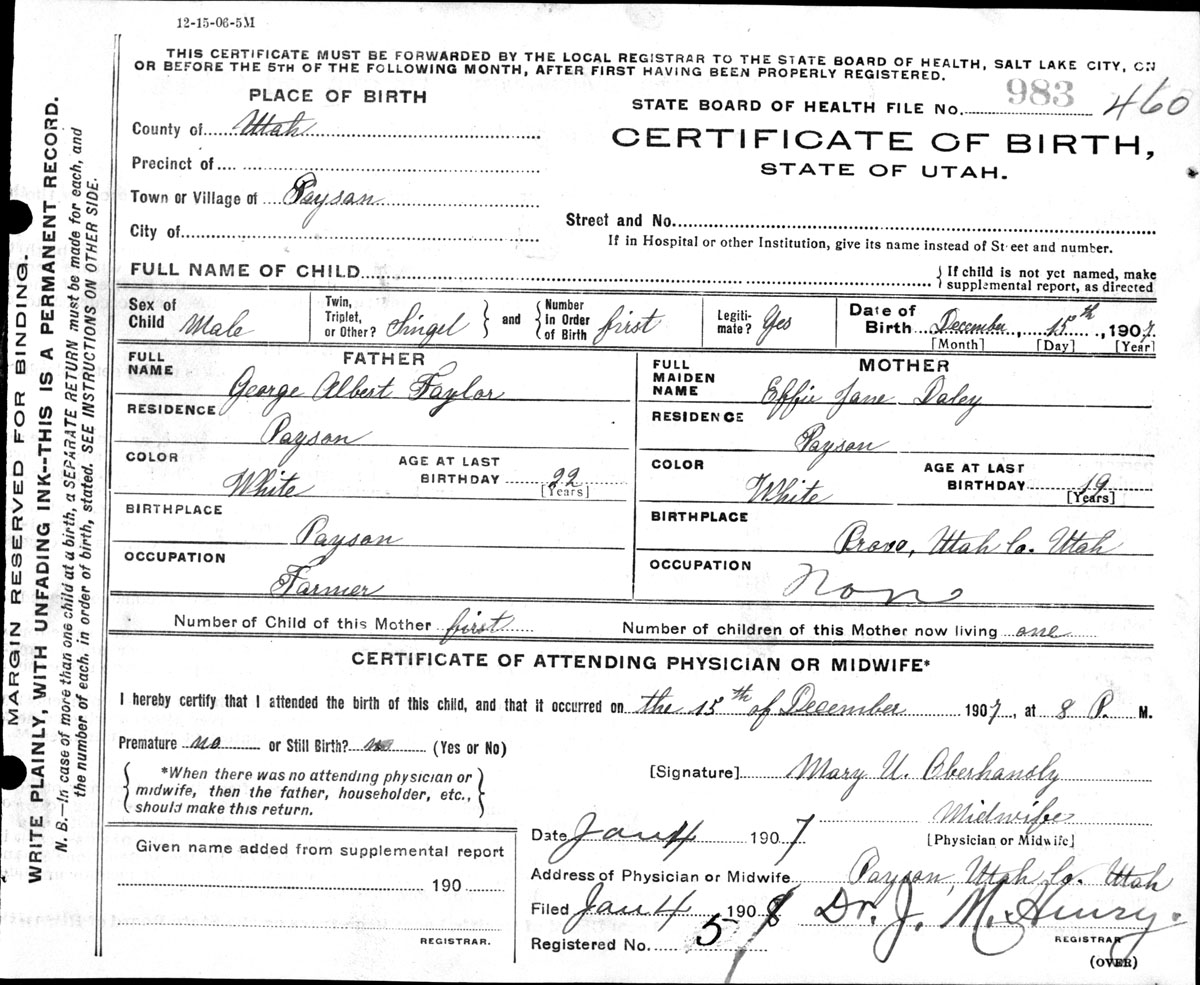 12-15-06-5M
THIS CERTIFICATE MUST BE FORWARDED BY THE LOCAL REGISTRAR TO THE STATE BOARD OF HEALTH, SALT LAKE CITY, ON
OR BEFORE THE 5TH OF THE FOLLOWING MONTH, AFTER FIRST HAVING BEEN PROPERLY REGISTERED.
MARGIN RESERVED FOR BINDING.
WRITE PLAINLY, WITH UNFADING INK--THIS IS A PERMANENT RECORD.
N. B.—In case of more than one child at a birth, a SEPARATE RETURN must be made for each, and
the number of each, in order of birth, stated. SEE INSTRUCTIONS ON OTHER SIDE.
PLACE OF BIRTH
County of Utah
Precinct of
Town or Village of Payson
City of
STATE BOARD OF HEALTH FILE No. 983 460
CERTIFICATE OF BIRTH,
STATE OF UTAH.
Street and No.
If in Hospital or other Institution, give its name instead of Street and number.
FULL NAME OF CHILD
If child is not yet named, make
supplemental report, as directed
Sex of Child Male
Twin, Triplet, or Other? Singel
and Number in Order of Birth first
Legitimate? Yes
Date of Birth December, 15th, 1907.
[Month] [Day] [Year]
FATHER
FULL NAME George Albert Taylor
RESIDENCE Payson
COLOR White
AGE AT LAST BIRTHDAY 22 [Years]
BIRTHPLACE Payson
OCCUPATION Farmer
MOTHER
FULL MAIDEN NAME Effie Jane Daley
RESIDENCE Payson
COLOR White
AGE AT LAST BIRTHDAY 19 [Years]
BIRTHPLACE Provo, Utah Co. Utah
OCCUPATION Non
Number of Child of this Mother first Number of children of this Mother now living one
CERTIFICATE OF ATTENDING PHYSICIAN OR MIDWIFE*
I hereby certify that I attended the birth of this child, and that it occurred on the 15th of December 1907, at 8 P. M.
Premature no or Still Birth? no (Yes or No)
*When there was no attending physician or
midwife, then the father, householder, etc.,
should make this return.
[Signature] Mary U. Oberhansly
Midwife
[Physician or Midwife]
Date Jan 4 1907
Address of Physician or Midwife Payson, Utah Co. Utah
Filed Jan 4 1908 Dr. J. M. Henry.
REGISTRAR
Registered No. 5
(OVER)
Given name added from supplemental report
190
REGISTRAR.